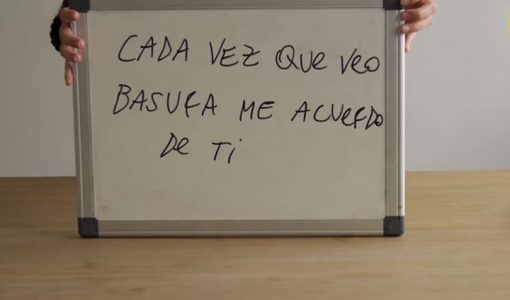 CADA VEZ QUE VEO
BASURA ME ACUERDO
DE TI